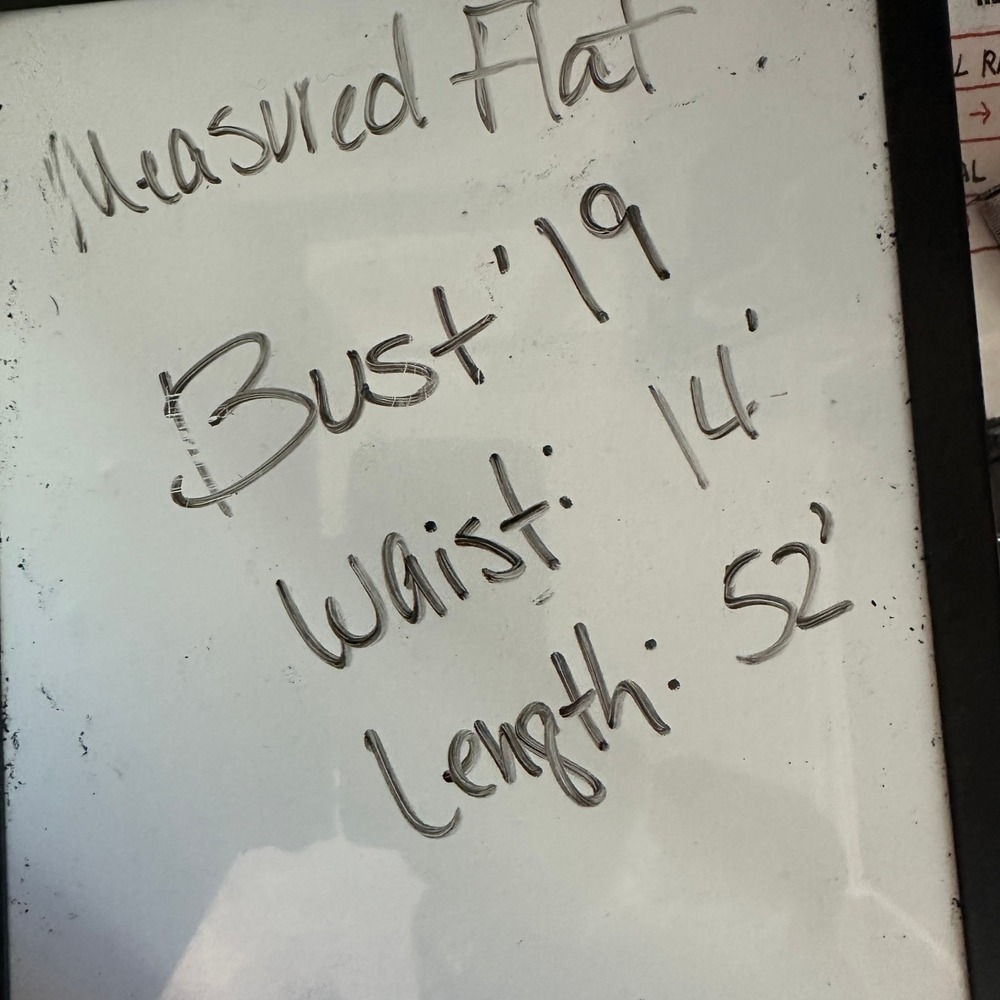 Measured Flat
Bust' 19
Waist: 14'
Length: 52'
L RA
→
AL